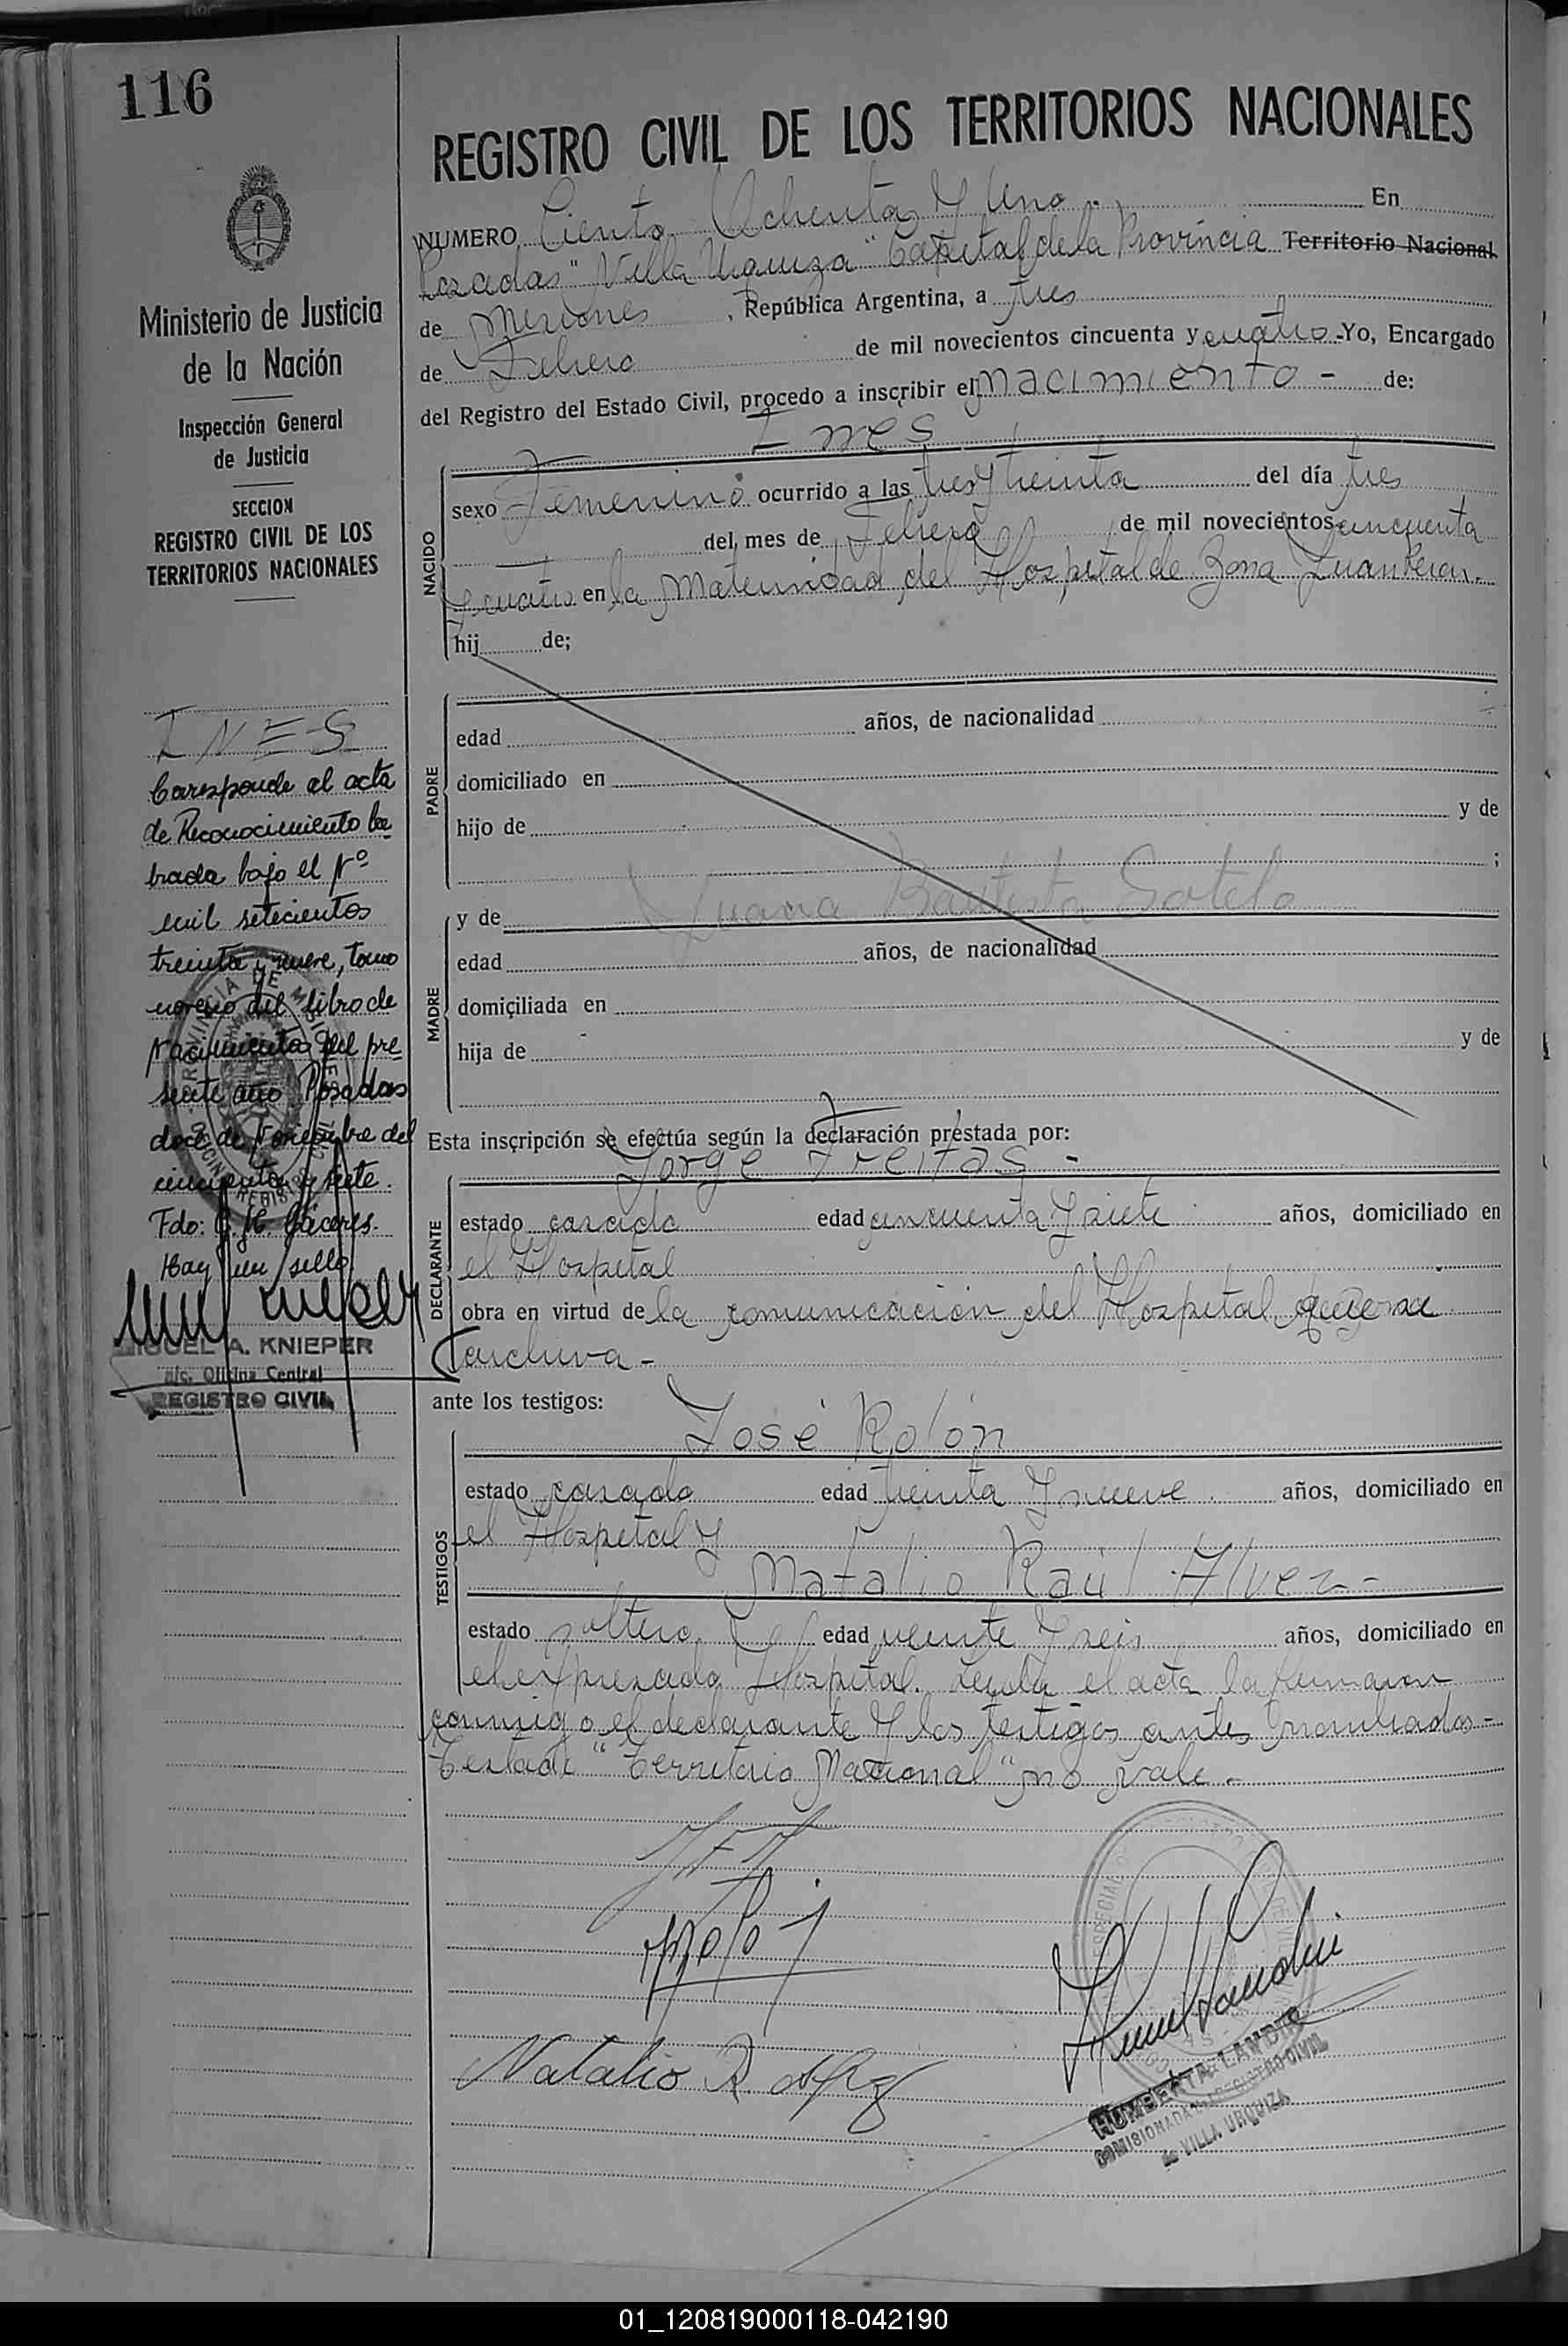 116
REGISTRO CIVIL DE LOS TERRITORIOS NACIONALES
NUMERO Ciento Ochenta y Uno. En
Posadas "Villa Urquiza" Capital de la Provincia Territorio Nacional
de Misiones, República Argentina, a tres
de Febrero de mil novecientos cincuenta y cuatro - Yo, Encargado
del Registro del Estado Civil, procedo a inscribir el nacimiento - de:
Inés
NACIDO
sexo Femenino ocurrido a las tres y treinta del día tres
del mes de Febrero de mil novecientos cincuenta
y cuatro en la Maternidad del Hospital de Zona Juan Perón.
hij de;
PADRE
edad años, de nacionalidad
domiciliado en
hijo de y de
;
MADRE
y de Juana Bautista Sotelo
edad años, de nacionalidad
domiciliada en
hija de y de
Esta inscripción se efectúa según la declaración prestada por:
Jorge Freitas -
DECLARANTE
estado casado edad cincuenta y siete años, domiciliado en
el Hospital
obra en virtud de la comunicación del Hospital que se
archiva -
ante los testigos:
José Rolón
TESTIGOS
estado casado edad treinta y nueve años, domiciliado en
el Hospital y
Natalio Raúl Alvez -
estado soltero edad veinte y seis años, domiciliado en
el expresado Hospital. Leída el acta la firmaron
conmigo el declarante y los testigos antes nombrados -
Testado "Territorio Nacional" no vale -
Natalio R.
HUMBERTA LANDRO
COMISIONADA REGISTRO CIVIL
de VILLA URQUIZA
Ministerio de Justicia
de la Nación
Inspección General
de Justicia
SECCION
REGISTRO CIVIL DE LOS
TERRITORIOS NACIONALES
INES
Corresponde al acta
de Reconocimiento la
brada bajo el Nº
mil setecientos
treinta y nueve, tomo
noveno del libro de
Nacimientos del pre
sente año Posadas
doce de Noviembre del
cincuenta y siete.
Fdo: Cáceres.
Hay un sello
MIGUEL A. KNIEPER
a/c. Oficina Central
REGISTRO CIVIL
01_120819000118-042190